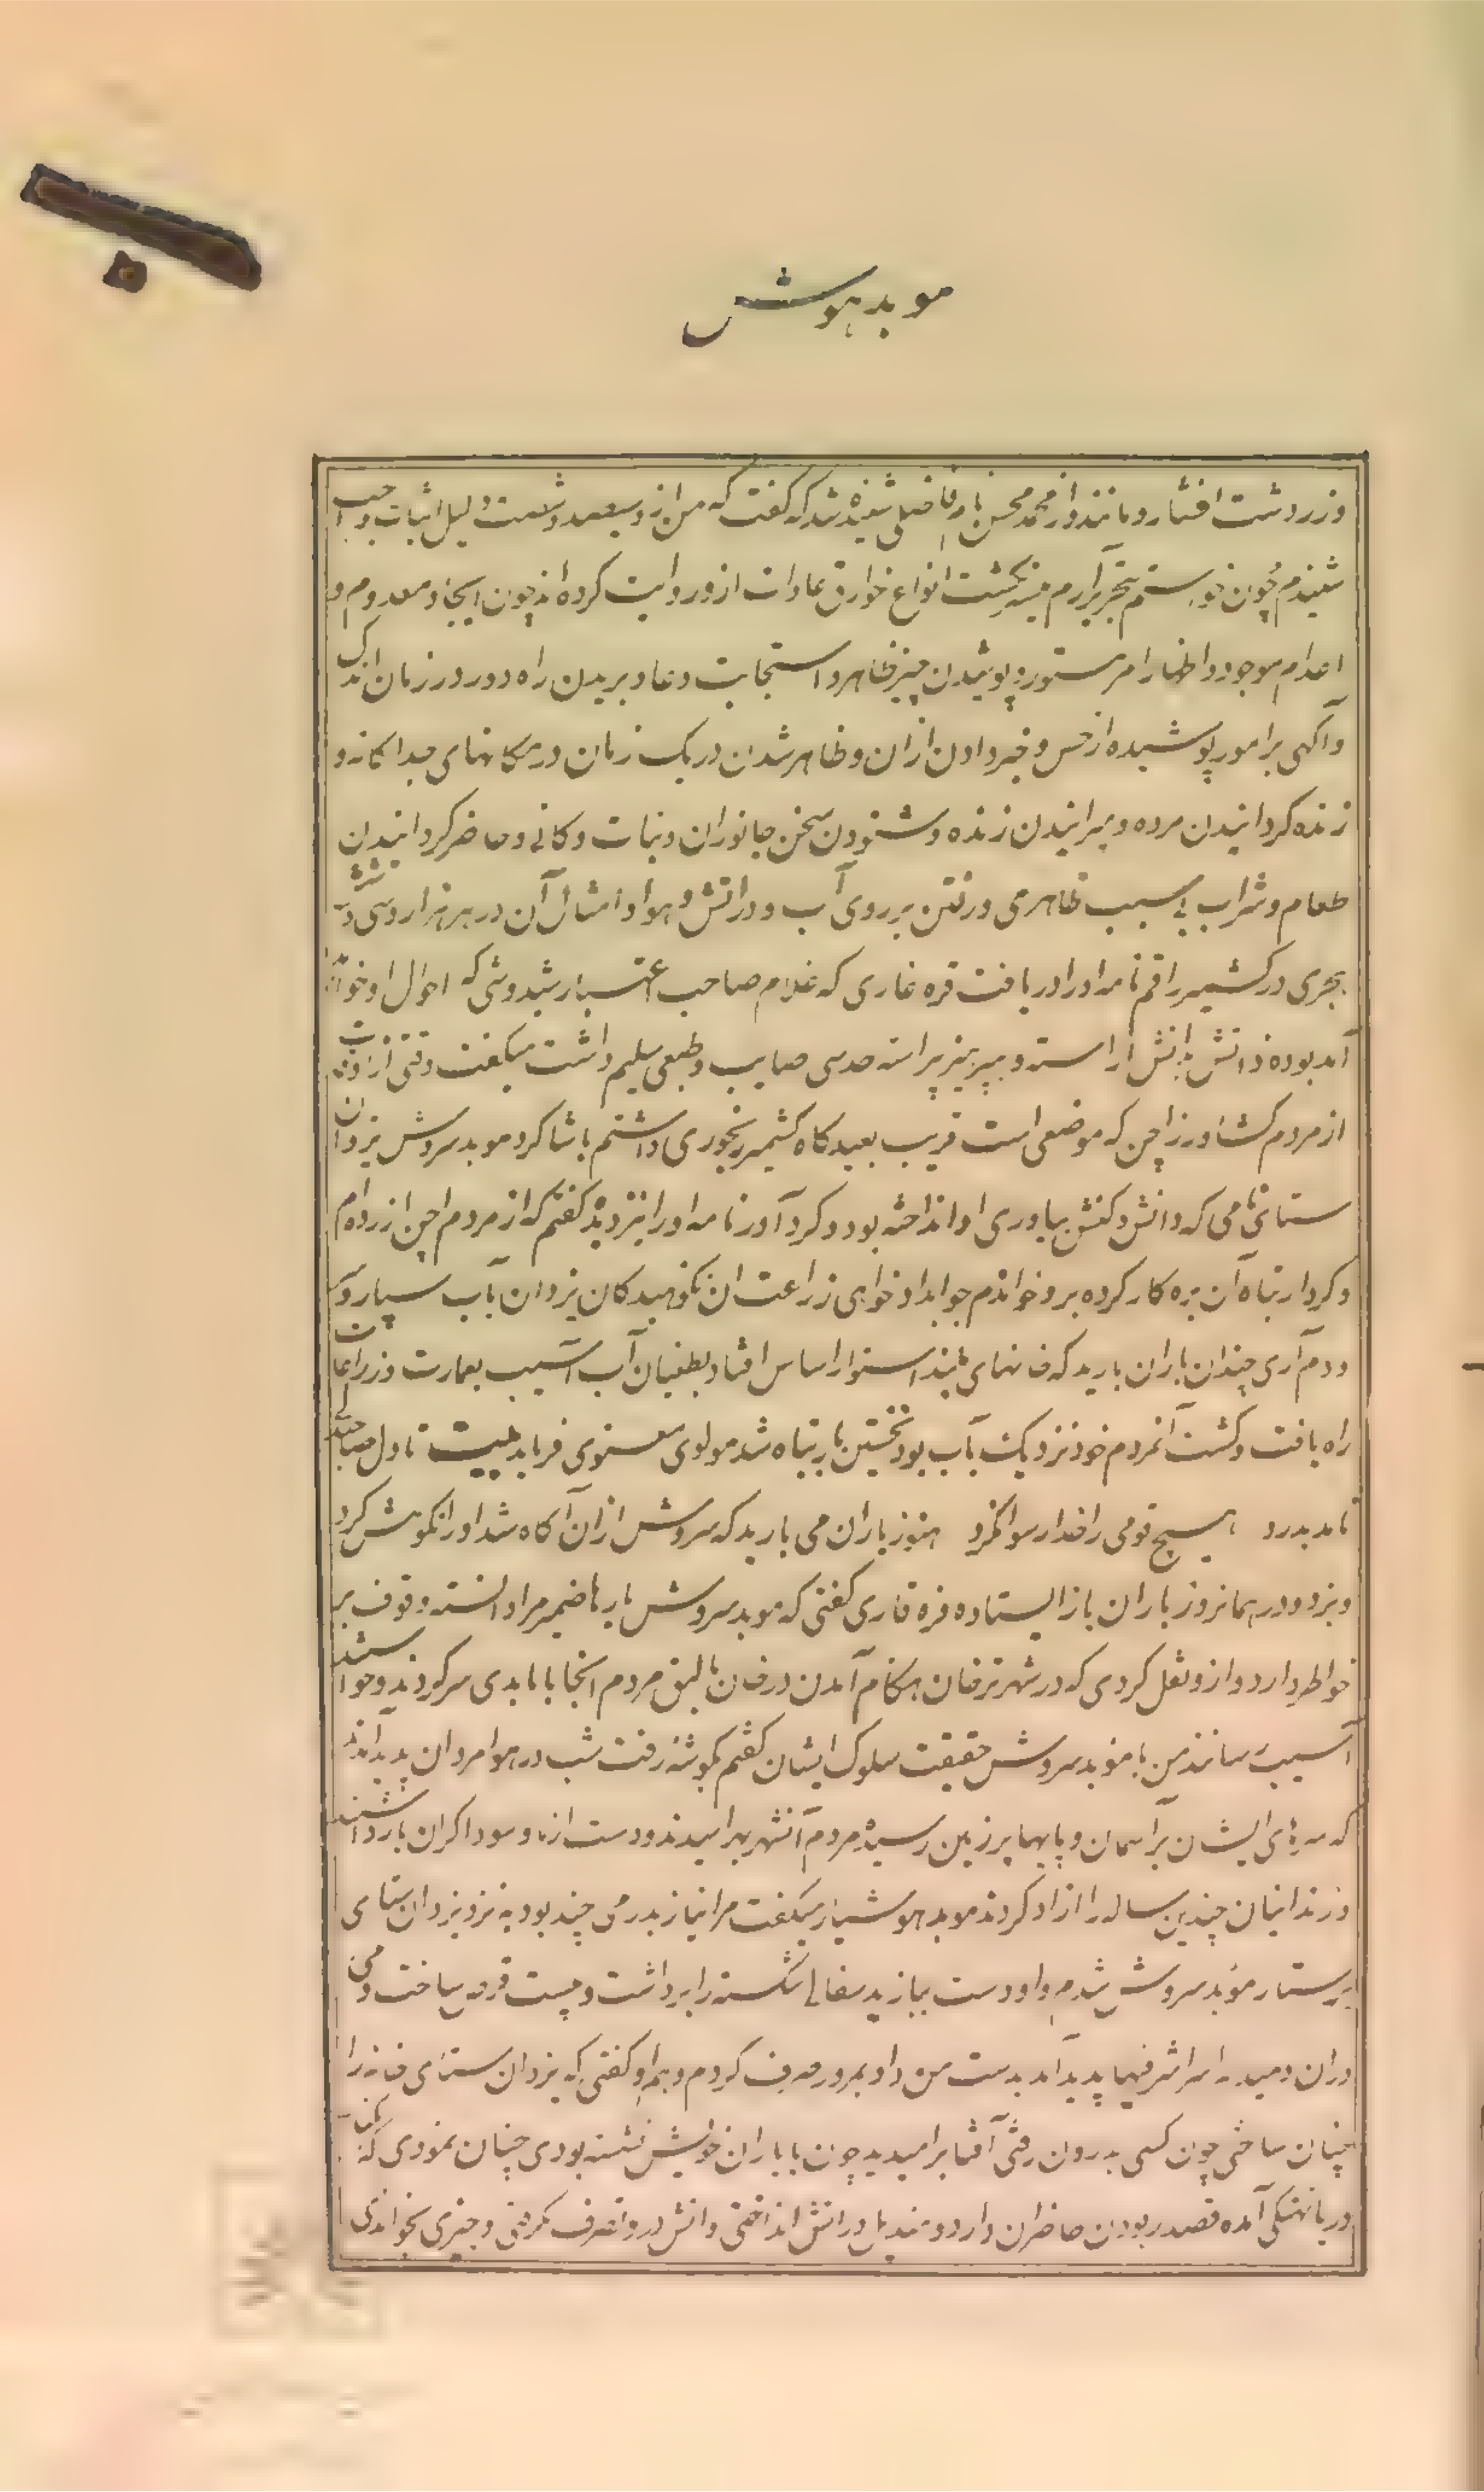 موبد هوش
و زردشت افشار و مانند او از محمد محسن نام فاضلی شنیده شد که گفت که من از و سیصد و شصت دلیل اثبات واجب
شنیدم چون خواستم بتحریر آرم میسر نگشت انواع خوارق عادات ازو روایت کرده اند چون ایجاد معدوم و
اعدام موجود و اظهار امر مستور و پوشیدن چیز ظاهر و استجابت دعا و بریدن راه دور در زمان اندک
و آگهی بر امور پوشیده از حس و خبر دادن ازان و ظاهر شدن در یک زمان در مکانهای جداگانه و
زنده گردانیدن مرده و میرانیدن زنده و شنودن سخن جانوران و نبات و کانی و حاضر گردانیدن
طعام و شراب بی سبب ظاهری و رفتن بر روی آب و در اتش و هوا و امثال آن در هزار و سی و شش
هجری در کشمیر راقم نامه او را دریافت قره قاری که غلام صاحب اعتبار شیدوشی که احوال او خواهد
آمد بوده ذاتش بدانش اراسته و بپرهیز پیراسته حدسی صایب و طبعی سلیم داشت میگفت وقتی از اوقات
از مردم کشاورز اچن که موضعی است قریب بعیدگاه کشمیر رنجوری داشتم با شاگرد موبد سروش یزدان
ستائی نامی که دانش و کنش بیاوری او انداخته بود و گردآور نامه او را نیز دیده گفتم که از مردم اچن ازرده ام
و کردار تباه آن بزه کار گرده برو خواندم جواب داد خواهی زراعت ان نکوهیدگان یزدان بآب سپارد
و دم آری چندان باران بارید که خانهای بلند استوار اساس افتاد و بطغیان آب آسیب بعمارت و زراعات
راه یافت و کشت آنمردم خود نزدیک بآب بود نخستین بار تباه شد مولوی معنوی فرماید بیت تا دل صاحبدلی
نامد بدرد هیچ قومی را خدا رسوا نکرد هنوز باران می بارید که سروش ازان آگاه شد او را نکوهش کرد
و بزد و در همانروز باران باز ایستاده قره قاری گفتی که موبد سروش بارها ضمیر مرا دانسته وقوف بر
خواطر دارد و ازو نقل کردی که در شهر ترخان هنگام آمدن در خان بالیق مردم انجا با ما بدی سر کردند و خواستند
آسیب رسانند من با موبد سروش حقیقت سلوک ایشان گفتم بگوشه رفت شب در هوا مردان پدید آمدند
که سرهای ایشان بر آسمان و پایها بر زمین رسیده مردم آنشهر بهراسیدند و دست از ما و سوداگران بازداشتند
و زندانیان چندین ساله را ازاد کردند موبد هوشیار میگفت مرا نیاز بدرمی چند بود به نزد یزدان ستای
پرستار موبد سروش شدم و او دست بیازید سفالی شکسته را برداشت و بیست قرص ساخت و می
دران دمید اسرا شرفیها پدید آمد بدست من داد بمرور صرف کردم و هم او گفتی که یزدان ستای خانه را
چنان ساختی چون کسی بدرون رفتی آفتاب را میدید چون با یاران خویش نشسته بودی چنان نمودی که
دریا نهنگی آمده قصد ربودن حاضران دارد و مندیل در اتش انداختی و اتش درو تصرف نکردی و چیزی بخواندی